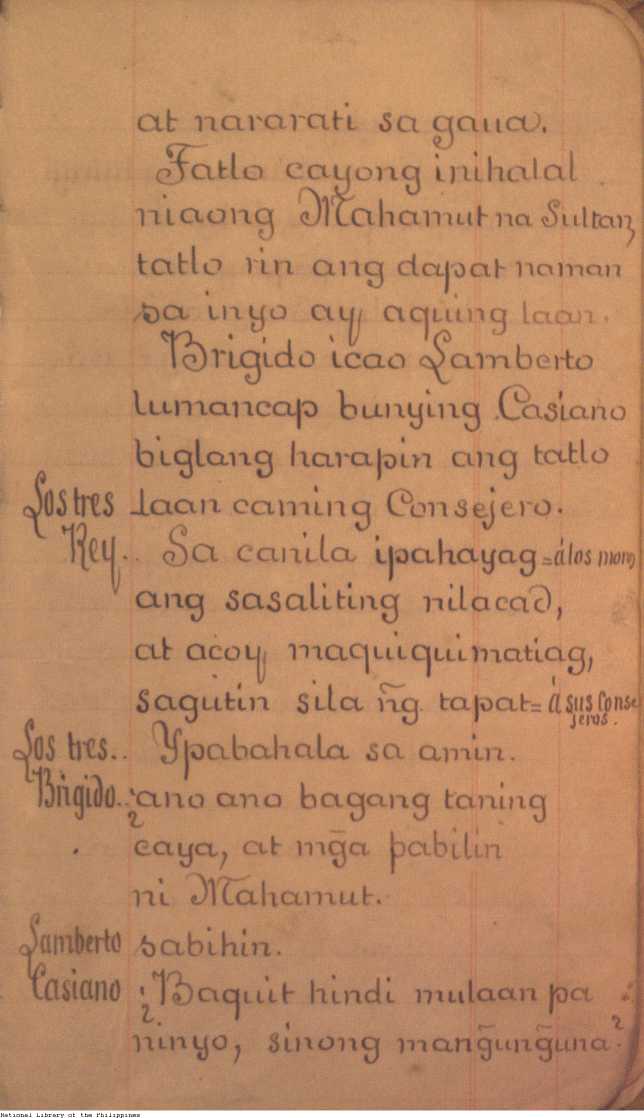 at nararati sa gaua.
Tatlo cayong inihalal
niaong Mahamut na Sultan,
tatlo rin ang dapat naman
sa inyo ay aquing laan.
Brigido icao Lamberto
lumancap bunying Casiano
biglang harapin ang tatlo
Los tres laan caming Consejero.
Rey.. Sa canila ipahayag = á los moros
ang sasaliting nilacad,
at acoy maquiquimatiag,
sagutin sila ñg tapat = á sus Conse
jeros.
Los tres.. Ypabahala sa amin.
Brigido.. ¿ano ano bagang taning
caya, at mg̃a pabilin
ni Mahamut.
Lamberto sabihin.
Casiano ¿Baquit hindi mulaan pa
ninyo, sinong mang̃ung̃una?
National Library of the Philippines